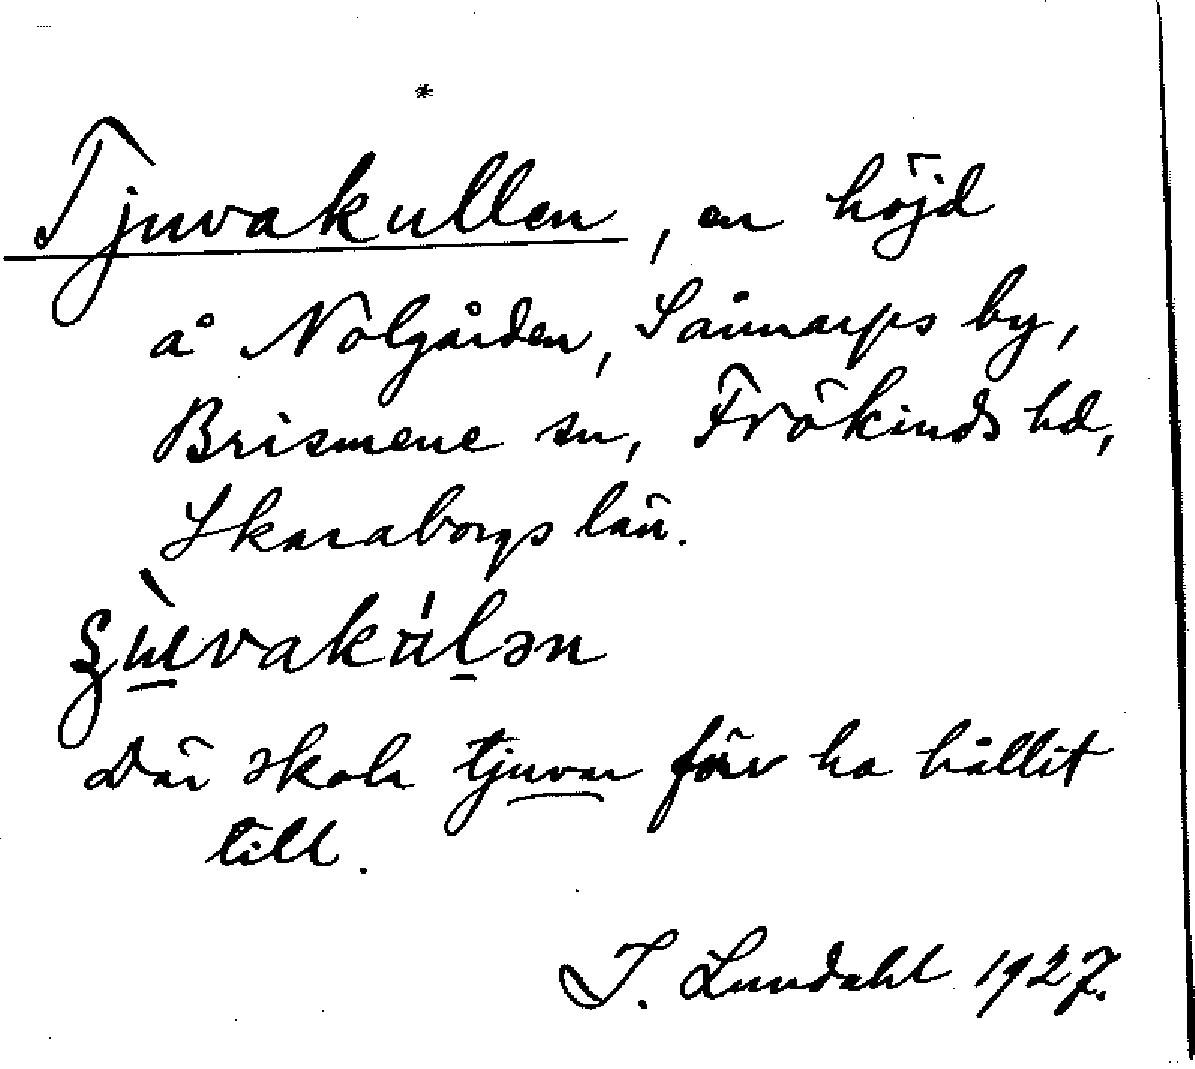 *
Tjuvakullen, en höjd
å Nolgården, Sännarps by,
Brismene sn, Frökinds hd,
Skaraborgs län.
Där skola tjuvar förr ha hållit
till.
I. Lundahl 1927.